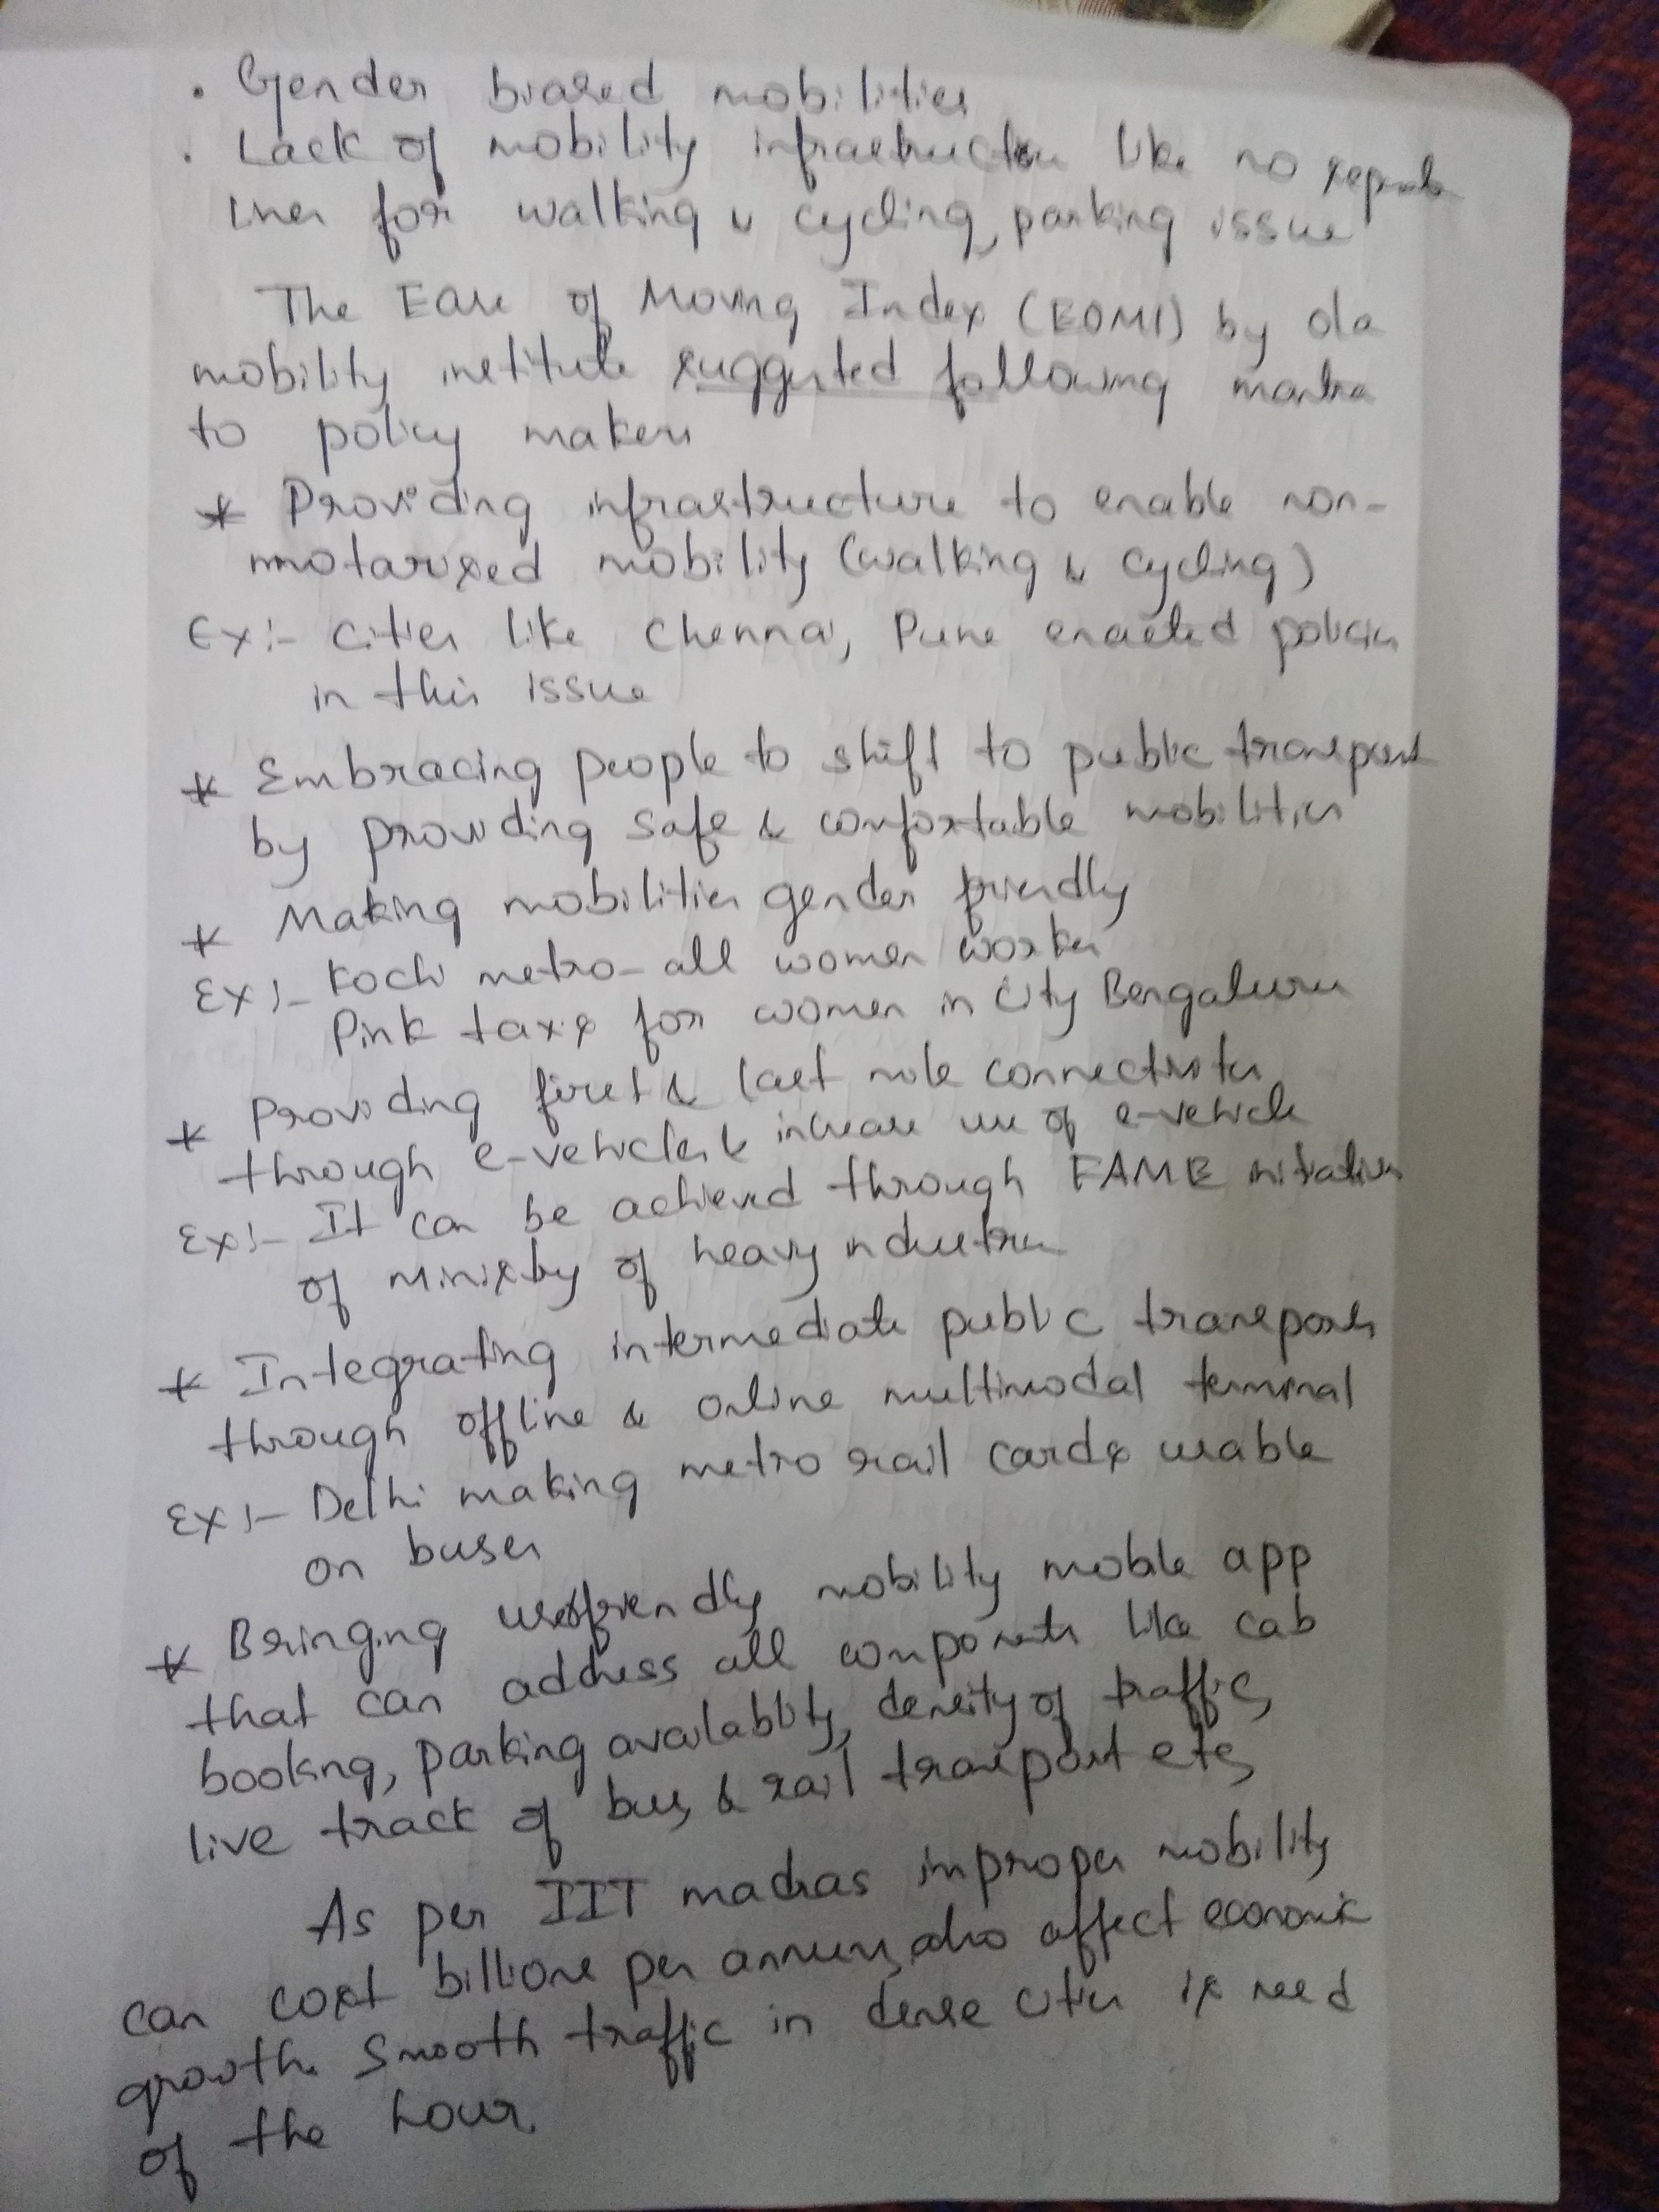 • Gender biased mobilities
• Lack of mobility infrastructure like no separate
lines for walking & cycling, parking issue
The Ease of Moving Index (EOMI) by ola
mobility institute suggested following mantra
to policy makers
* Providing infrastructure to enable non-
motarised mobility (walking & cycling)
Ex:- cities like Chennai, Pune enacted policies
in this issue
* Embracing people to shift to public transport
by providing safe & comfortable mobilities
* Making mobilities gender friendly
Ex:- Kochi metro- all women worker
Pink taxis for women in City Bengaluru
* Providing first & last mile connectivities
through e-vehicles & increase use of e-vehicle
Ex:- It can be achieved through FAME initiatives
of Ministry of heavy industries
* Integrating intermediate public transports
through offline & online multimodal terminal
Ex:- Delhi making metro rail cards usable
on buses
* Bringing userfriendly mobility mobile app
that can address all components like cab
booking, parking availablity, density of traffic,
live track of bus, & rail transport etc,
As per IIT madras improper mobility
can cost billions per annum, also affect economic
growth. Smooth traffic in dense cities is need
of the hour.